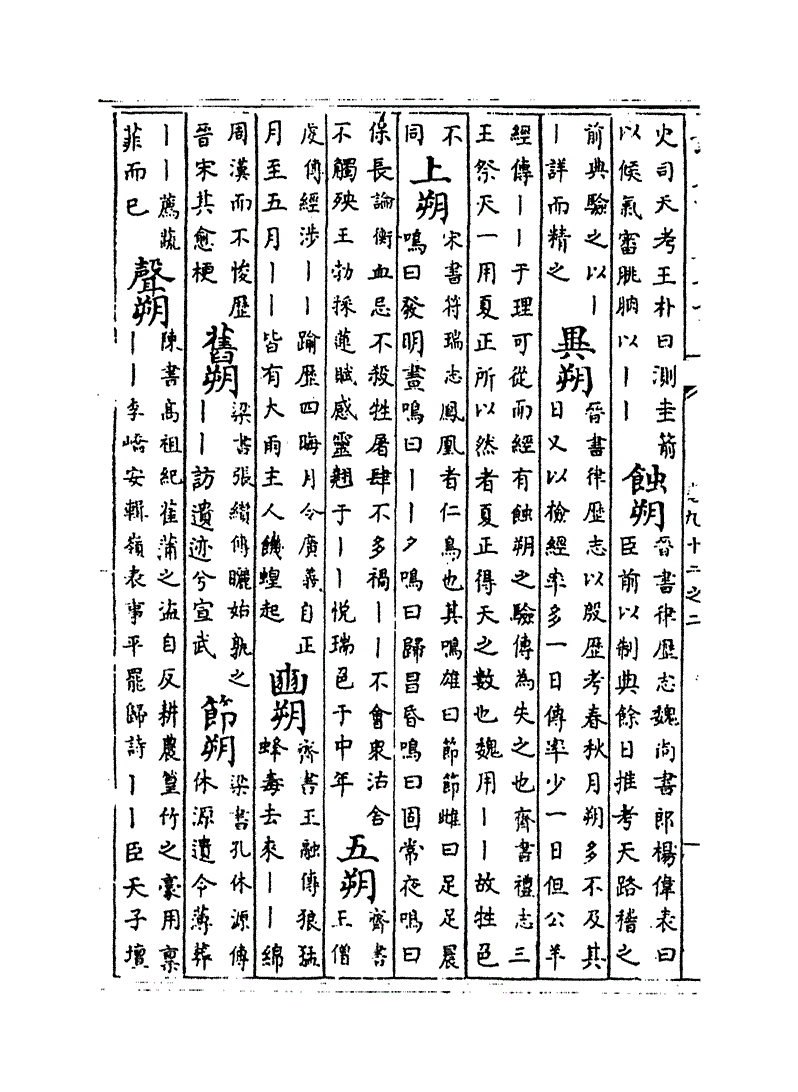 史司天考王朴曰測圭箭
以候氣審朓朒以丨丨
蝕朔
晉書律歷志魏尚書郎楊偉表曰
臣前以制典餘日推考天路稽之
前典驗之以丨
丨詳而精之
異朔
晉書律歷志以殷歷考春秋月朔多不及其
日又以檢經率多一日傳率少一日但公羊
經傳丨丨于理可從而經有蝕朔之驗傳為失之也齊書禮志三
王祭天一用夏正所以然者夏正得天之數也魏用丨丨故牲色
不
同
上朔
宋書符瑞志鳳凰者仁鳥也其鳴雄曰節節雌曰足足晨
鳴曰發明晝鳴曰丨丨夕鳴曰歸昌昏鳴曰固常夜鳴曰
保長論衡血忌不殺牲屠肆不多禍丨丨不會衆沽舍
不觸殃王勃採蓮賦感靈翹于丨丨悅瑞色于中年
五朔
齊書
王僧
虔傳經涉丨丨踰歷四晦月令廣義自正
月至五月丨丨皆有大雨主人饑蝗起
幽朔
齊書王融傳狼猛
蜂毒去來丨丨綿
周漢而不悛歷
晉宋其愈梗
舊朔
梁書張纘傳曬姑孰之
丨丨訪遺迹兮宣武
節朔
梁書孔休源傳
休源遺令薄葬
丨丨薦蔬
菲而已
聲朔
陳書高祖紀萑蒲之盜自反耕農篁竹之豪用稟
丨丨李嶠安輯嶺表事平罷歸詩丨丨臣天子壇